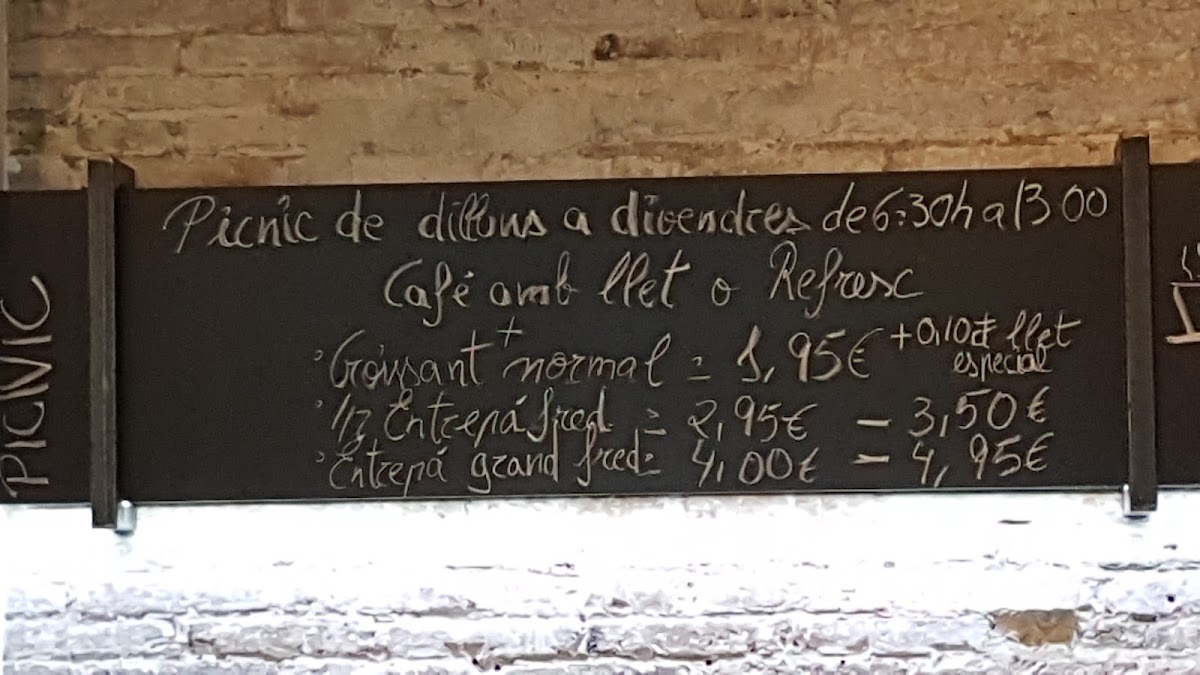 PICNIC
Picnic de dilluns a divendres de 6:30h a 13 00
Café amb llet o Refresc
+
Croissant normal = 1,95€ +0,10€ llet especial
1/2 Entrepá fred = 2,95€ - 3,50€
Entrepá grand fred = 4,00€ - 4,95€